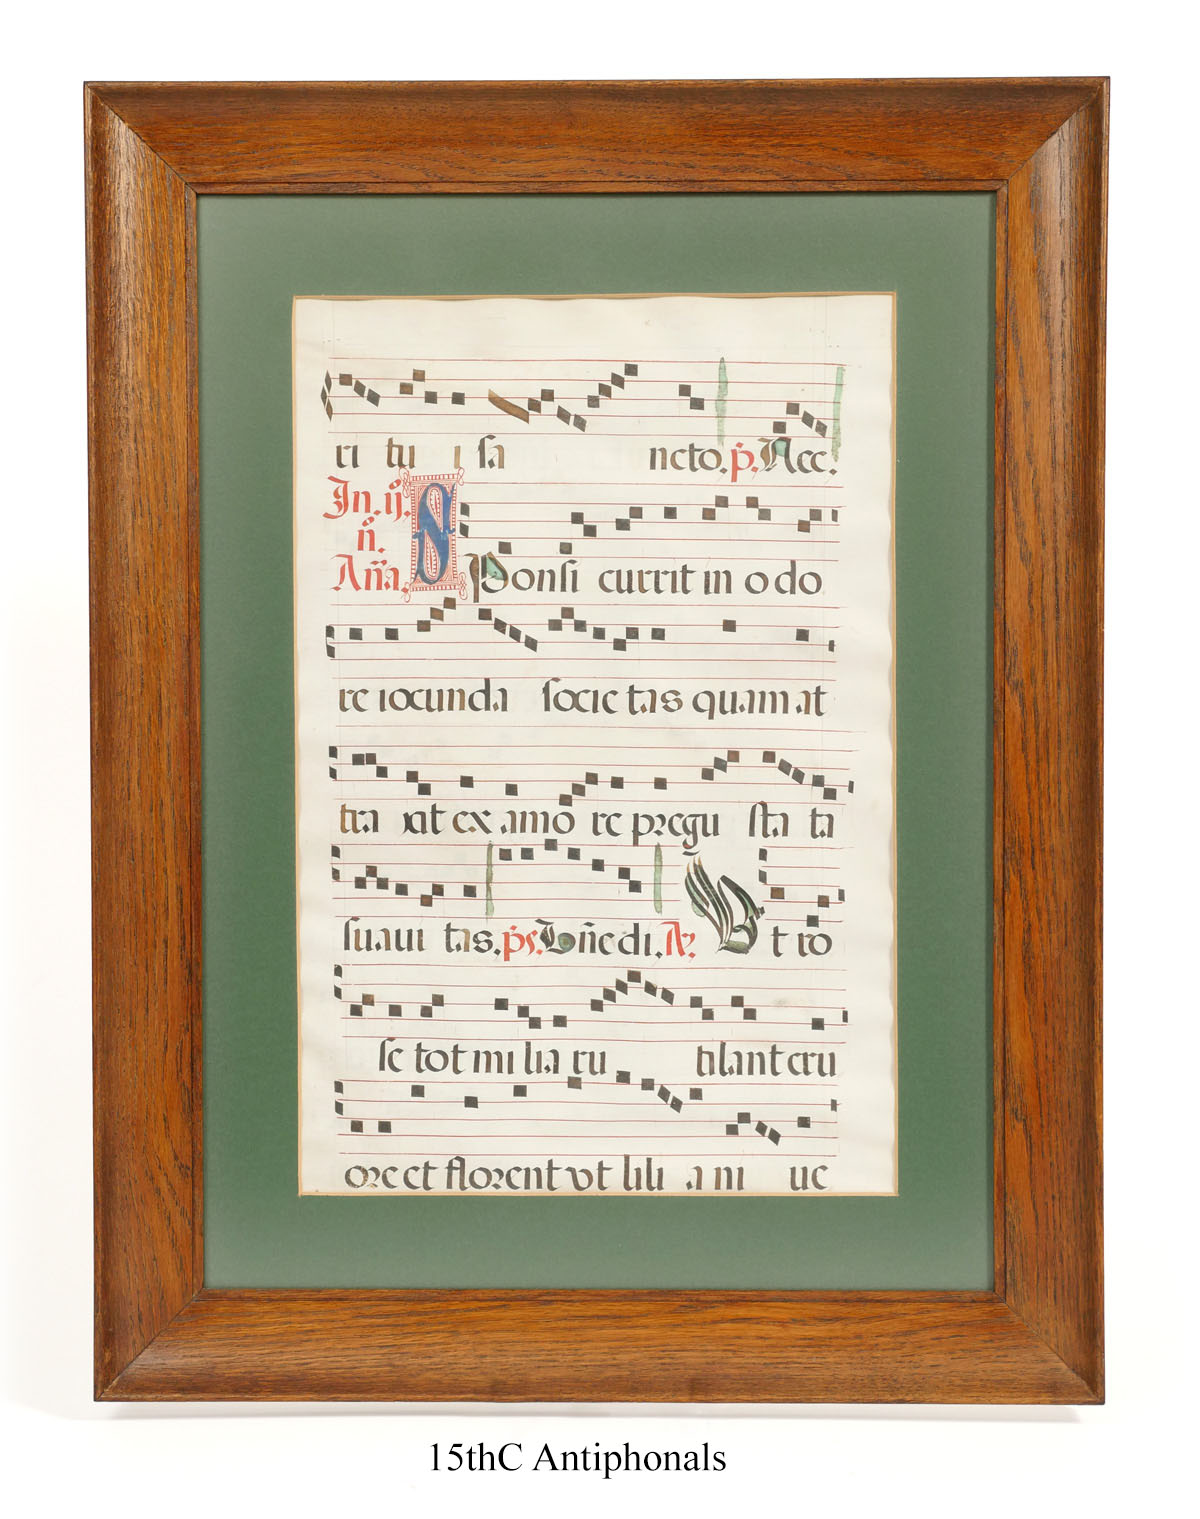 ri tu i sa ncto. p̄. Nec.
In. ij.
n̄.
Añа. S Ponsi currit in odo
re iocunda socie tas quam at
tra xit ex amo re pregu sta ta
suaui tas. ps. Bñedi. A. Vt ro
se tot mi lia ru tilant cru
ore et florent vt lili a ni ue
15thC Antiphonals